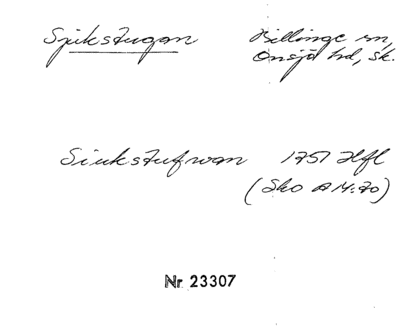 Sjukstugan Billinge sn,
Onsjö hd, Sk.
Siukstufwan 1757 Hfl
(Sko A 14:70)
Nr 23307